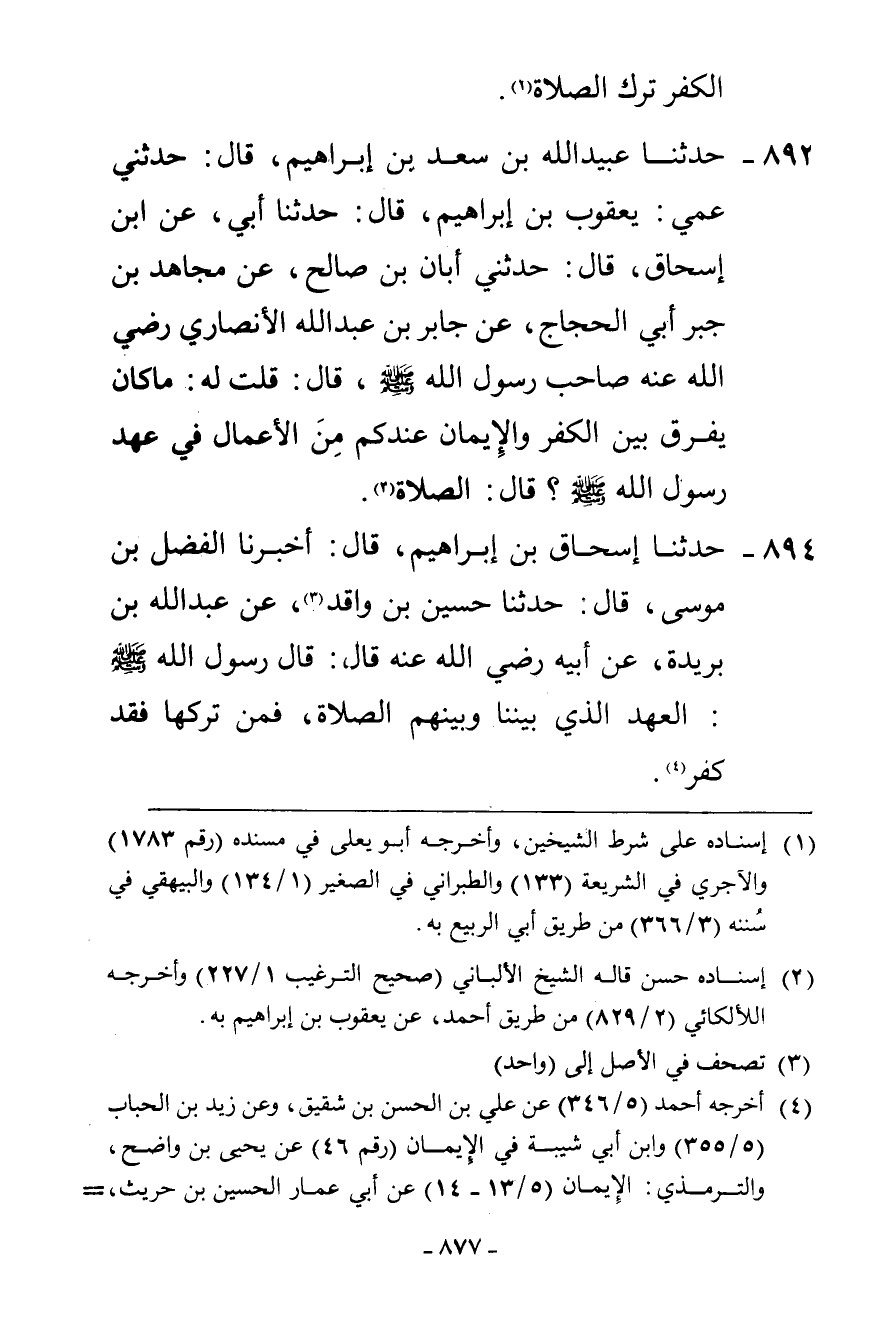 الكفر ترك الصلاة(١).
٨٩٢ - حدثنـــا عبيدالله بن سعـد بن إبـراهيم، قال: حدثني
عمي: يعقوب بن إبراهيم، قال: حدثنا أبي، عن ابن
إسحاق، قال: حدثني أبان بن صالح، عن مجاهد بن
جبر أبي الحجاج، عن جابر بن عبدالله الأنصاري رضي
الله عنه صاحب رسول الله ﷺ ، قال: قلت له: ماكان
يفـرق بين الكفر والإيمان عندكم مِنَ الأعمال في عهد
رسول الله ﷺ ؟ قال: الصلاة(٢).
٨٩٤ - حدثنـا إسحـاق بن إبـراهيم، قال: أخبـرنا الفضل بن
موسى، قال: حدثنا حسين بن واقد(٣)، عن عبدالله بن
بريدة، عن أبيه رضي الله عنه قال: قال رسول الله ﷺ
: العهد الذي بيننا وبينهم الصلاة، فمن تركها فقد
كفر(٤).
(١) إسنـاده على شرط الشيخين، وأخـرجـه أبـو يعلى في مسنده (رقم ١٧٨٣)
والآجري في الشريعة (١٣٣) والطبراني في الصغير (١٣٤/١) والبيهقي في
سُننه (٣٦٦/٣) من طريق أبي الربيع به.
(٢) إسنـــاده حسن قالـه الشيخ الألبـاني (صحيح التـرغيب ٢٢٧/١) وأخـرجـه
اللألكائي (٨٢٩/٢) من طريق أحمد، عن يعقوب بن إبراهيم به.
(٣) تصحف في الأصل إلى (واحد)
(٤) أخرجه أحمد (٣٤٦/٥) عن علي بن الحسن بن شقيق، وعن زيد بن الحباب
(٣٥٥/٥) وابن أبي شيبــة في الإيمــان (رقم ٤٦) عن يحيى بن واضح،
والتـرمـذي: الإيمان (١٣/٥ - ١٤) عن أبي عمار الحسين بن حريث، =
- ٨٧٧ -